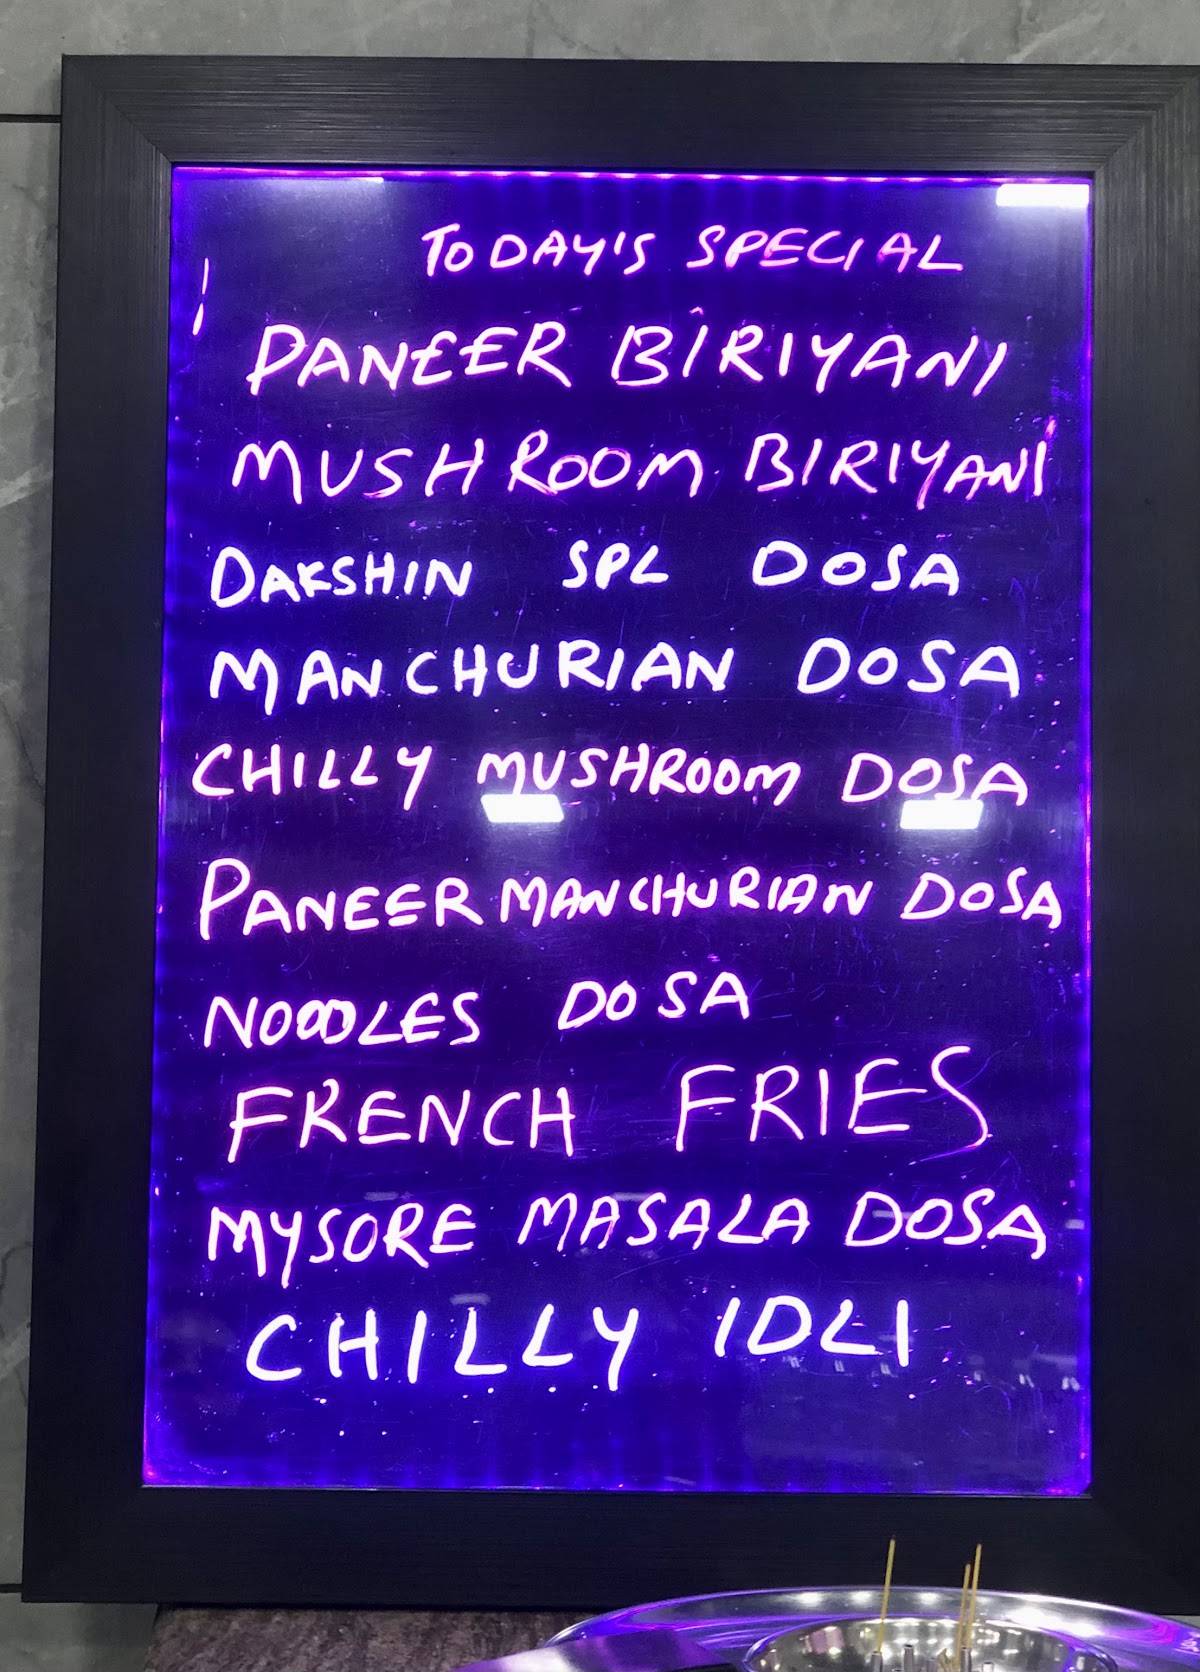 TODAY'S SPECIAL
PANEER BIRIYANI
MUSHROOM BIRIYANI
DAKSHIN SPL DOSA
MANCHURIAN DOSA
CHILLY MUSHROOM DOSA
PANEER MANCHURIAN DOSA
NOODLES DOSA
FRENCH FRIES
MYSORE MASALA DOSA
CHILLY IDLI